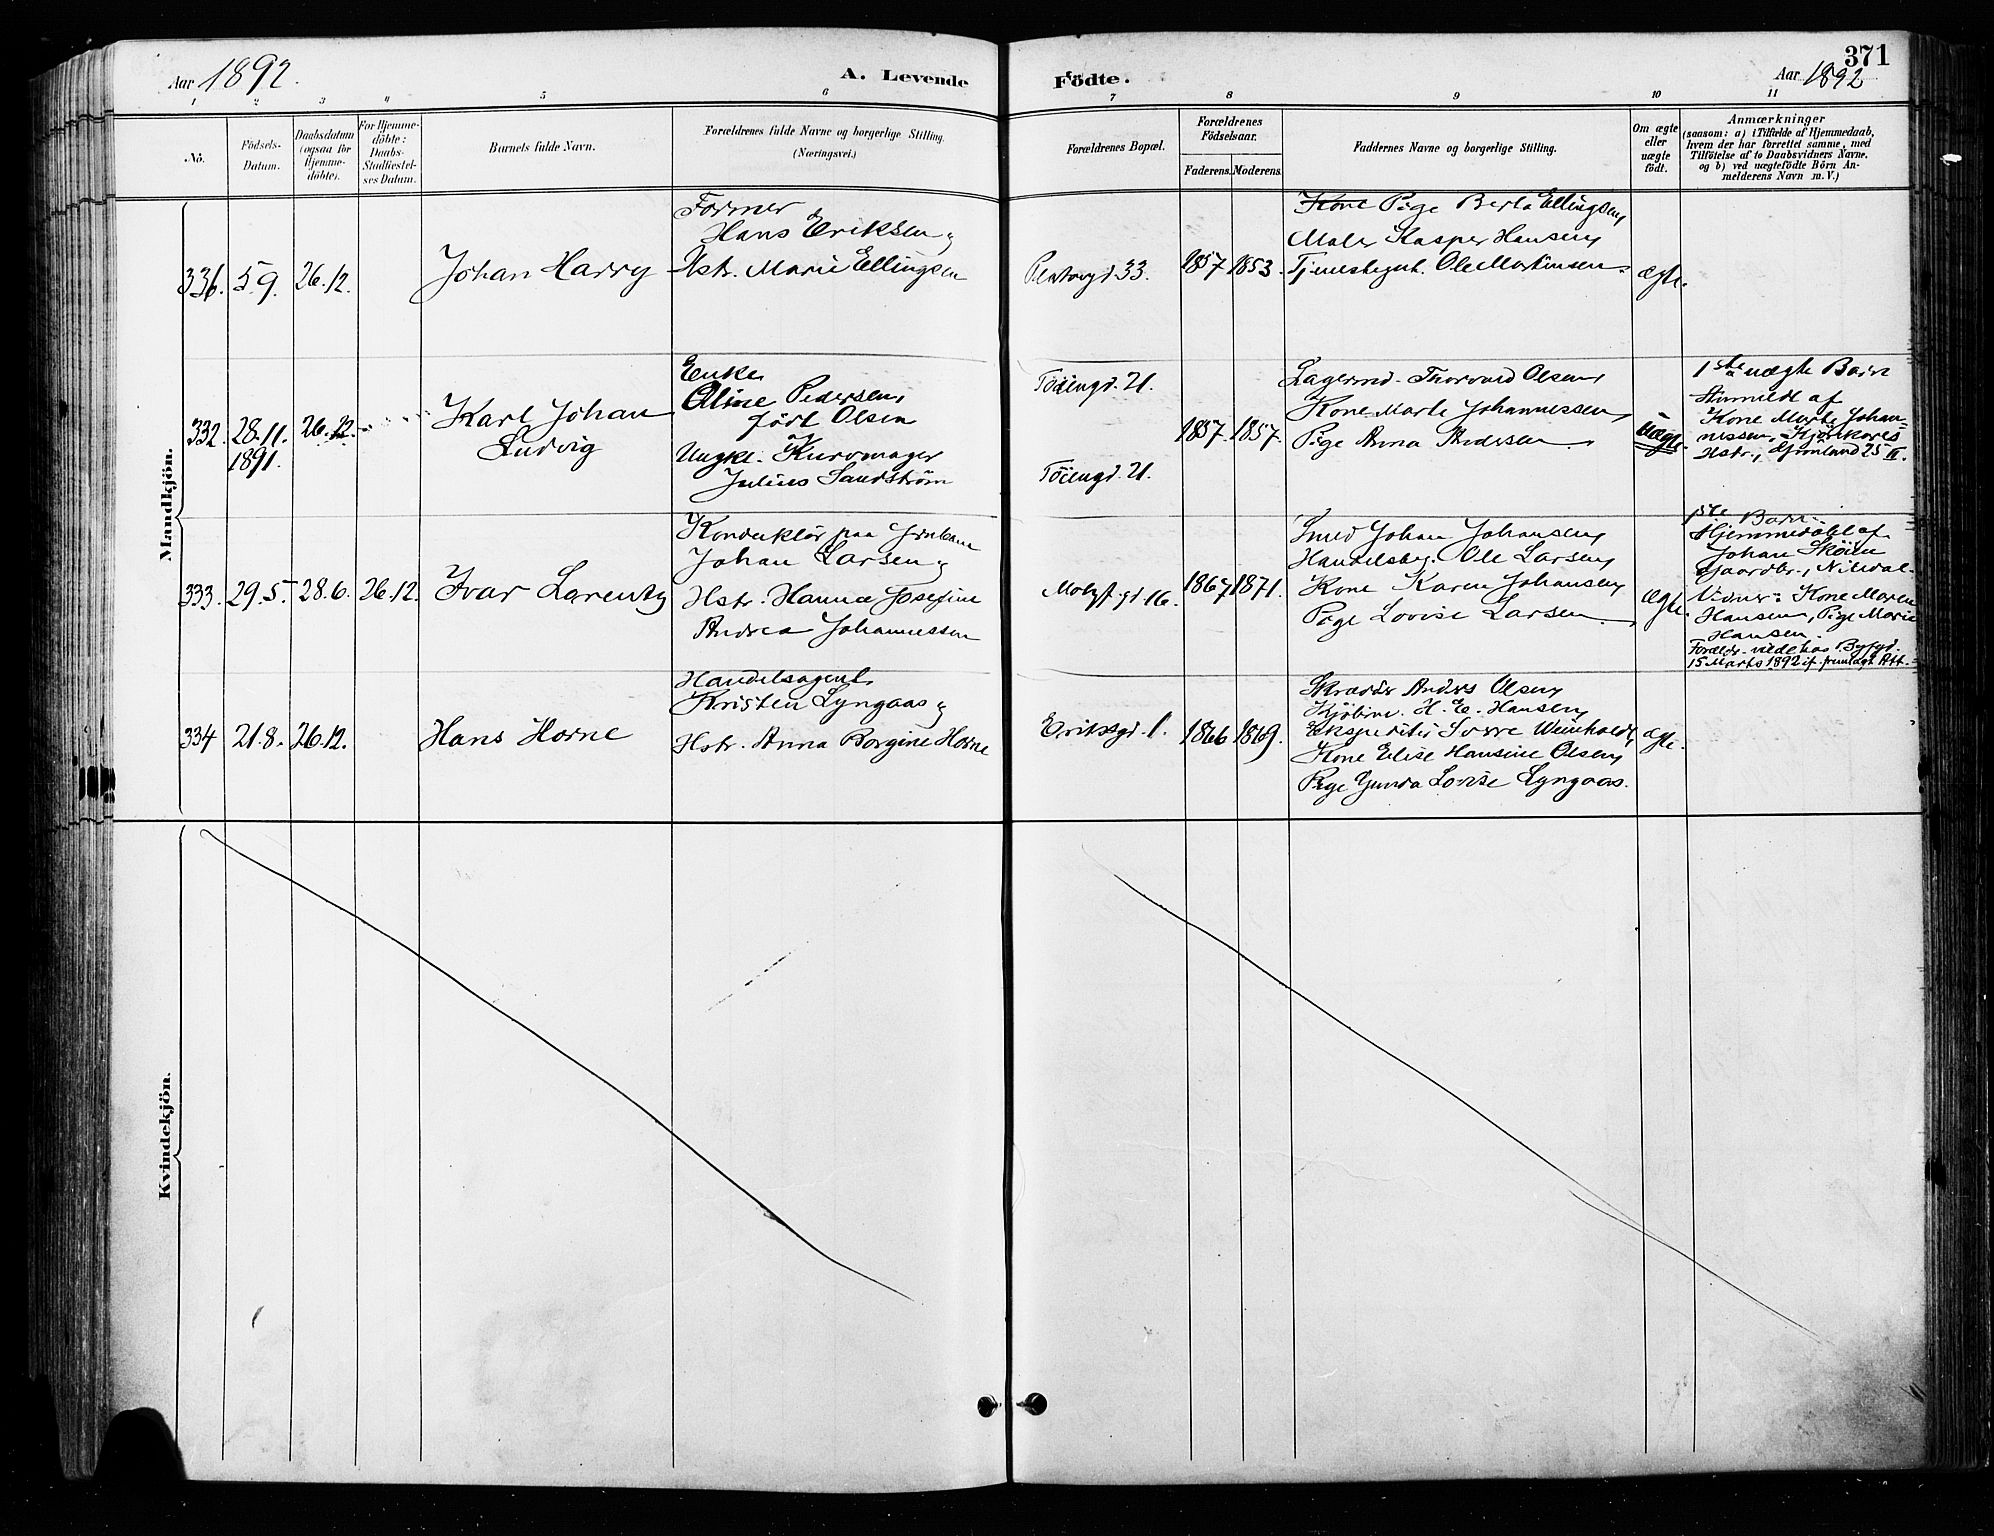 371
Aar 1892.
A. Levende Födte.
Aar 1892
1 2 3 4 5 6 7 8 9 10 11
No.
Födsels-
Datum.
Daabsdatum
(ogsaa for
Hjemme-
döbte).
For Hjemme-
döbte:
Daabs-
Stadfæstel-
ses Datum.
Barnets fulde Navn.
Forældrenes fulde Navne og borgerlige Stilling.
(Næringsvei.)
Forældrenes Bopæl.
Forældrenes
Födselsaar.
Faderens. Moderens.
Faddernes Navne og borgerlige Stilling.
Om ægte
eller
uægte
födt.
Anmærkninger
(saasom: a) i Tilfælde af Hjemmedaab,
hvem der har forrettet samme, med
Tilföielse af to Daabsvidners Navne,
og b) ved uægtefödte Börn An-
melderens Navn m. V.)
Mandkjön.
336. 5.9. 26.12.
Johan Harry
Former
Hans Eriksen
Hstr. Marie Ellingsen
33.
1857 1853.
Kone Pige Berta Ellingsen
Maler Kasper Hansen
Ole Martinsen
ægte.
332. 28.11. 26.12.
1891.
Karl Johan
Ludvig
Enke
Oline Pedersen,
født Olsen
Ungk. Kurvmager
Julius Sandstrøm
Töiengd. 21.
Töiengd. 21.
1857. 1857.
Lagermd. Thorvald Olsen
Kone Marte Johannessen
Pige Anna Andersen
uægte.
1ste uægte Barn
Anmeldt af
Kone Marte Johan-
nessen,
Hstr., Grønland 25 II.
333. 29.5. 28.6. 26.12.
Ivar Lorentz
Konduktør paa Jrnbane
Johan Larsen
Hstr. Hanna Josefine
Andrea Johannessen
16.
1867 1871.
Smed Johan Johansen
Handelsbg. Ole Larsen
Kone Karen Johansen
Pige Lovise Larsen
ægte.
1ste Barn
Hjemmedøbt af
Johan Skøien
Gaardbr., Nitedal.
Vidner: Kone Maren
Hansen, Pige Marie
Hansen.
15 Marts 1892 Att.
334 21.8. 26.12.
Hans Horne
Handelsagent
Kristen Lyngaas
Hstr. Anna Borgine Horne
Eriksgd. 1.
1866 1869.
Skrædder Anders Olsen
Kjöbm. H. E. Hansen
Kone Elise Hansine Olsen
Pige Gunda Lovise Lyngaas.
ægte.
Kvindekjön.